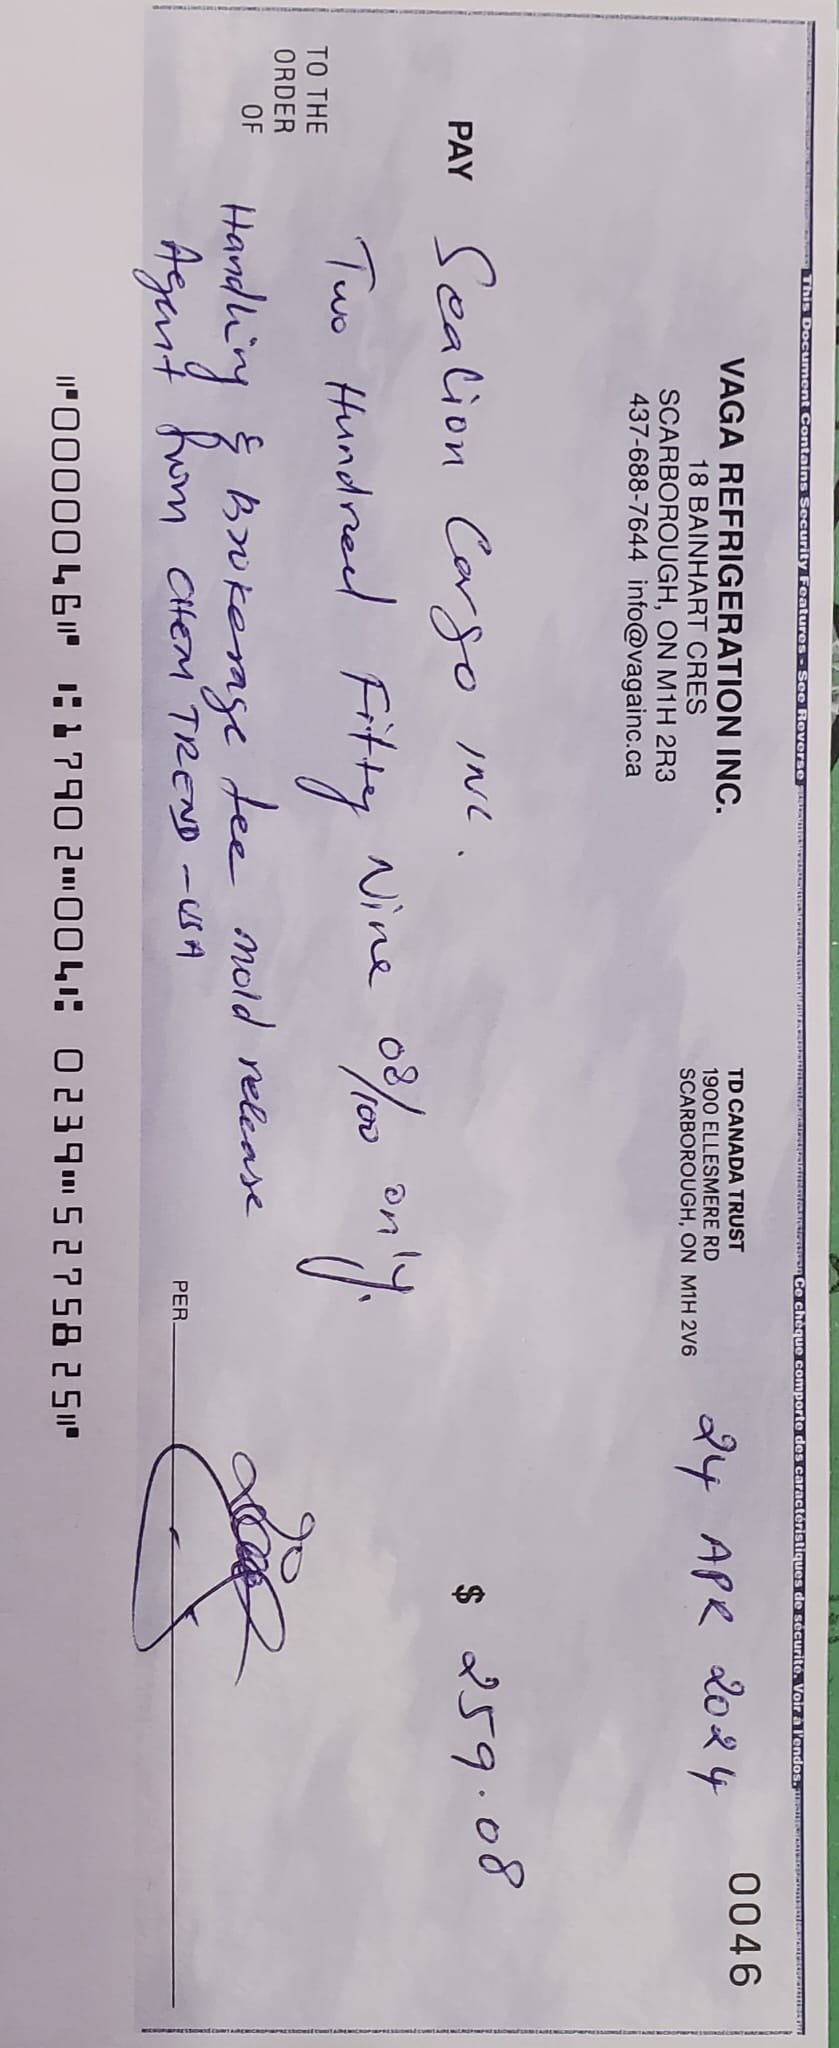 This Document Contains Security Features - See Reverse
Ce chèque comporte des caractéristiques de sécurité. Voir à l'endos.
VAGA REFRIGERATION INC.
18 BAINHART CRES
SCARBOROUGH, ON M1H 2R3
437-688-7644 info@vagainc.ca
TD CANADA TRUST
1900 ELLESMERE RD
SCARBOROUGH, ON M1H 2V6
0046
24 APR 2024
PAY Sealion Cargo INC.
$ 259.08
Two Hundred Fifty Nine 08/100 only.
TO THE
ORDER
OF
Handling & Brokerage fee mold release
Agent from CHEM TREND - USA
PER
⑈000046⑈ ⑆17902⑉004⑆ 0239⑉5275825⑈